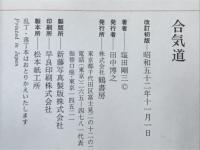 合気道
改訂初版・昭和五十二年十一月一日
著者・塩田剛三©
発行者・田中博之
発行所・株式会社 鶴書房
東京都千代田区富士見二の十二の二
振替口座・東京一四五一二
電話（東京）二六五―四七六一代表
製版所・新藤写真製版株式会社
印刷所・早良印刷株式会社
製本所・松本紙工所
乱丁・落丁本はおとりかえいたします。
Printed in Japan